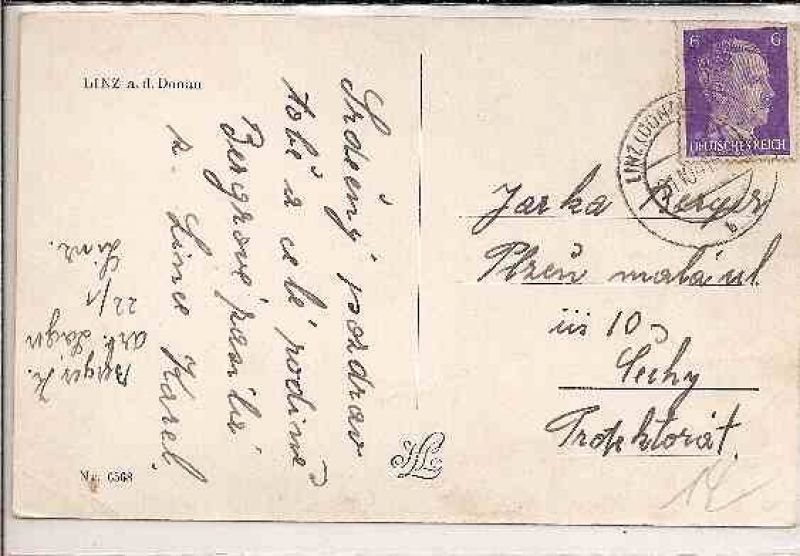 LINZ a. d. Donau
Srdečný pozdrav
tobě a celé rodině
Bergrově posílá
z Lince Karel.
Berger K.
arb. Lager
22/1
Linz.
Nr. 6568
HL
6 6
DEUTSCHES REICH
LINZ (DONAU)
b
Jarka Berger
Plzeň malá ul.
čís 10
Čechy
Protektorát.
14